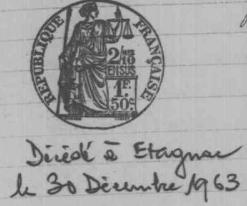 RÉPUBLIQUE FRANÇAISE
2/10
EN SUS
1F.
50c
Décédé à Etagnac
le 30 Décembre 1963